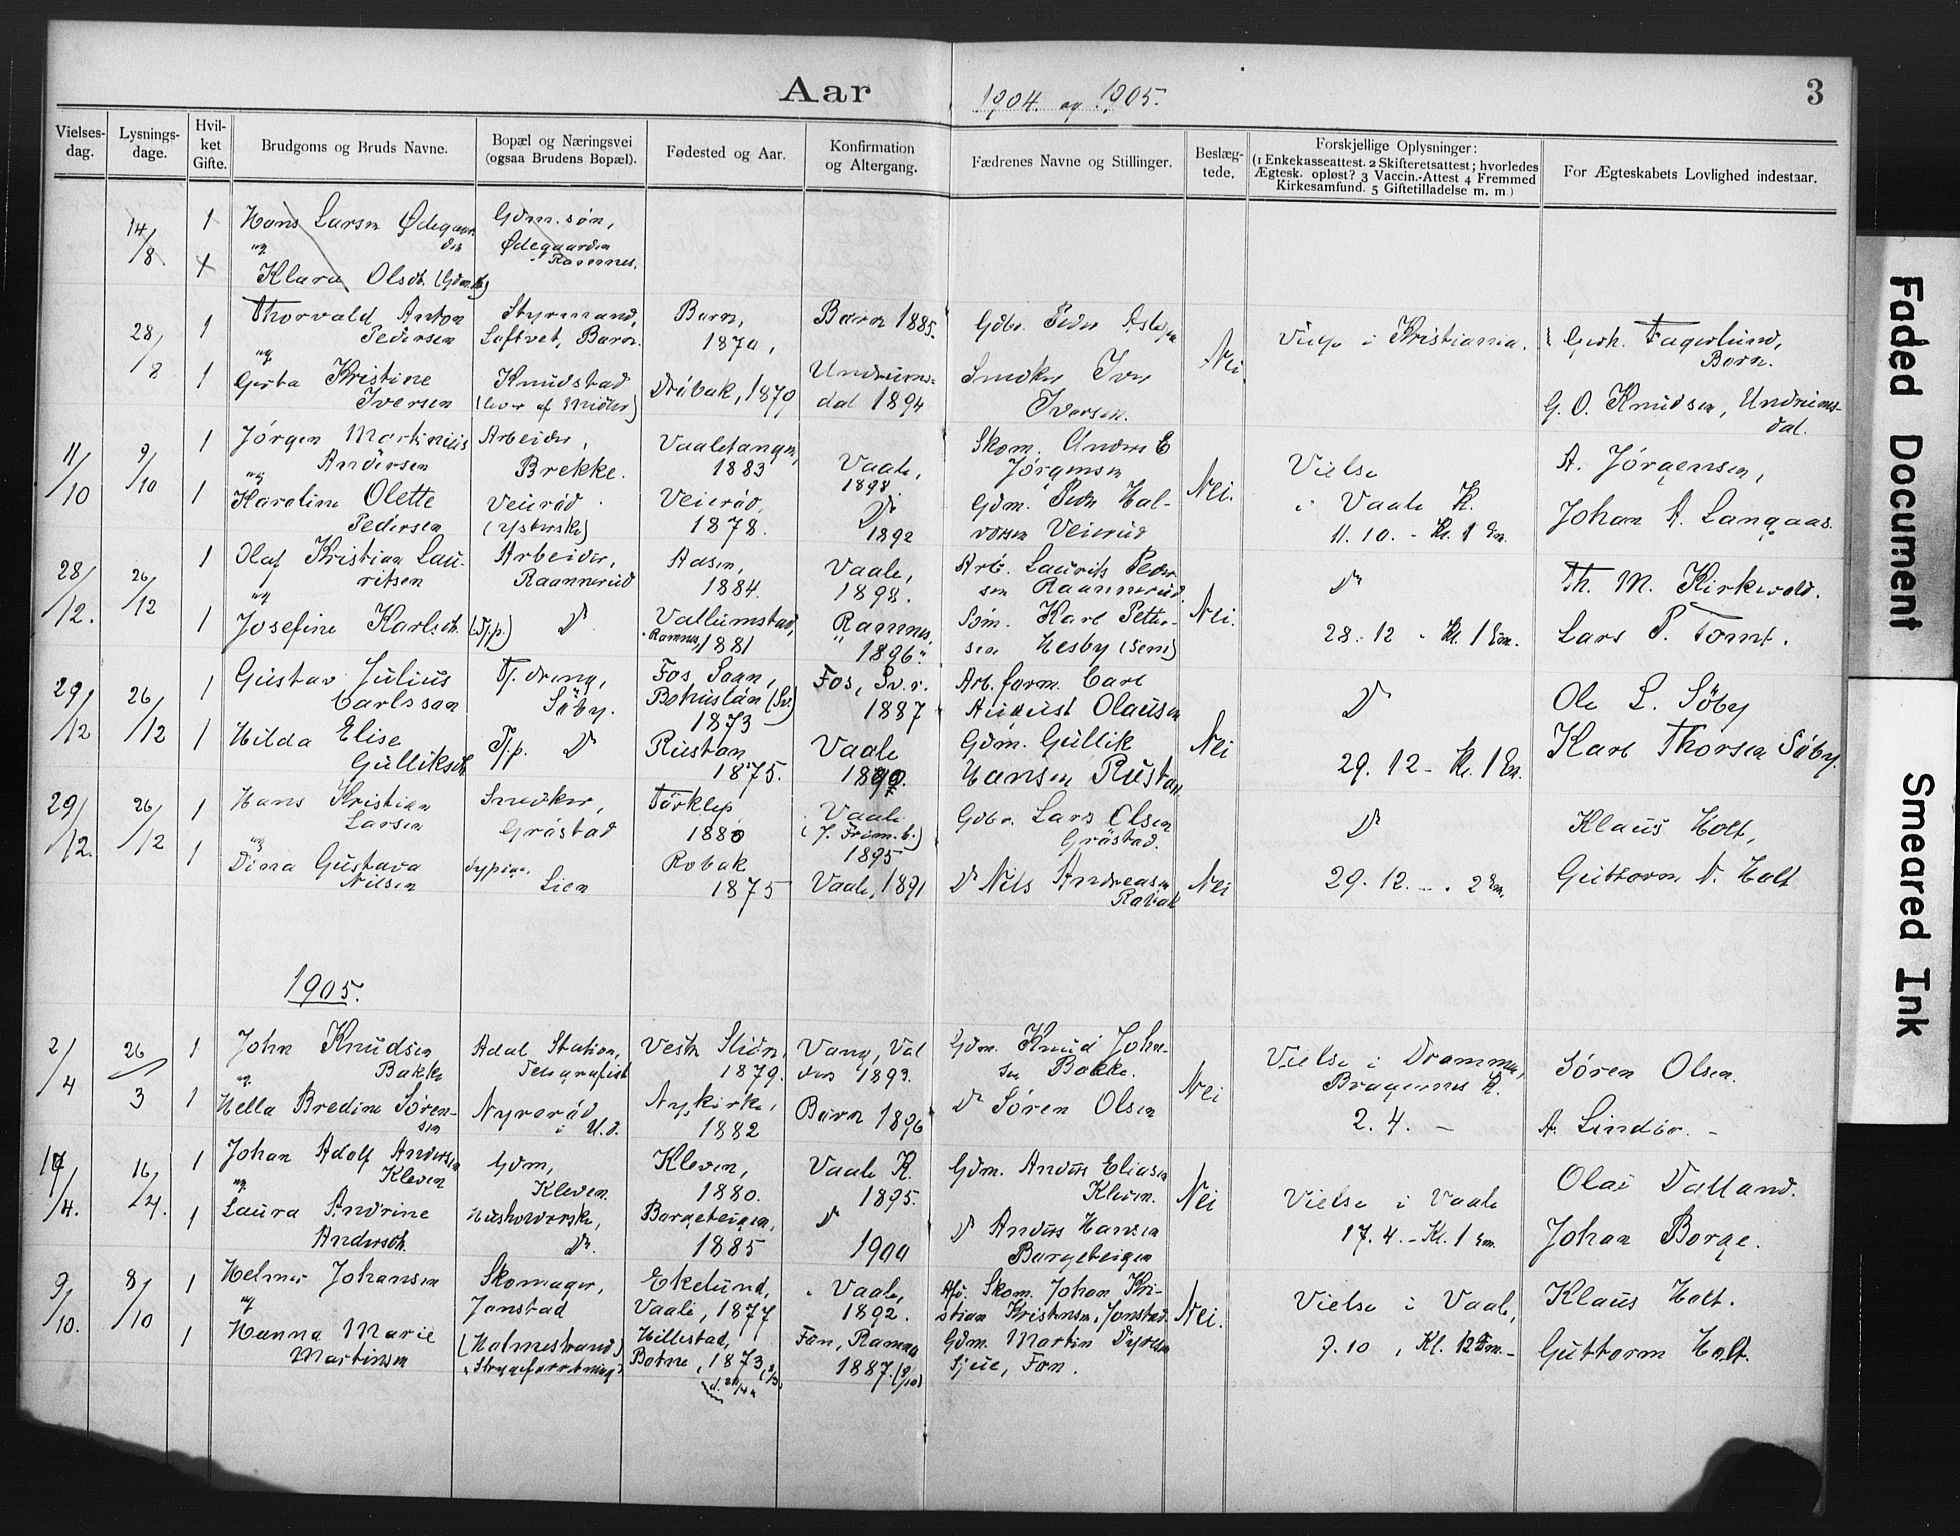 Aar 1904. og 1905.
3
Vielses-
dag.
Lysnings-
dage.
Hvil-
ket
Gifte.
Brudgoms og Bruds Navne.
Bopæl og Næringsvei
(ogsaa Brudens Bopæl).
Fødested og Aar.
Konfirmation
og Altergang.
Fædrenes Navne og Stillinger.
Beslæg-
tede.
Forskjellige Oplysninger:
(1 Enkekasseattest. 2 Skifteretsattest; hvorledes
Ægtesk. opløst? 3 Vaccin.-Attest 4 Fremmed
Kirkesamfund. 5 Giftetilladelse m. m.)
For Ægteskabets Lovlighed indestaar.
14/8.
1
1
Hans Larsen Ødegaar-
den
og
Klara Olsdt. (Gdm.dt)
Gdm. søn,
Ødegaarden
Ramnes.
28/8
1
1
Thorvald Anton
Pedersen
og
Gerta Kristine
Iversen
Styrmand,
Løftvet, Borre.
Knudstad
(lever af Midler)
Borre,
1870,
Drøbak, 1879
Borre 1885.
Undrums-
dal 1894
Gdbr. Peder Aslesen
Snedker Iver
Iversen.
Nei
Vielse i Kristiania.
Gerh. Fagerlund,
Borre.
G. O. Knudsen, Undrums-
dal.
11/10
9/10
1
1
Jørgen Martinius
Andersen
og
Karoline Olette
Pedersen
Arbeider,
Brekke.
Veierød
Vaaletangen,
1883
Veierød,
1878.
Vaale,
1898.
Do
1892
Skom. Anders E
Jørgensen
Gdm. Peder Hal-
vorsen Veierud
Nei.
Vielse
i Vaale K.
11. 10. - Kl. 1 Em.
A. Jørgensen,
Johan A. Langaas.
28/12.
26/12
1
1
Olaf Kristian Lau-
ritsen
og
Josefine Karlsdt.
Arbeider,
Raannerud
(Tj.p.) Do.
Aasen,
1884.
Vallumstad,
Ramnes, 1881
Vaale,
1898.
Ramnes,
1896.
Arb. Laurits Peder
sen Raannerud.
Søm. Karl Petter-
sen Hesby (Sem)
Nei.
Do
28. 12 - Kl. 1 Em.
Th. M. Kirkevold.
Lars P. Tomt.
29/12
26/12
1
1
Gustav Julius
Carlsson
Hilda Elise
Gulliksdt.
Tj. dreng,
Søby.
Tj.p. Do
Fos Sogn,
Bohuslän (Sv.)
1873
Rustan
1875.
Fos, Sv.r.
1887
Vaale
Arb. form. Carl
August Olausen
Gdm. Gullik
Hansen Rustan
Nei
Do
29. 12 - Kl. 1 Em.
Ole L. Søby
Karl Thorsen Søby.
29/12.
26/12
1
1
Hans Kristian
Larsen
og
Dina Gustava
Nilsen
Snedker,
Gråstad
Sypige.
Lien
Tørklep
1880
Robak
1875
Vaale
1895
Vaale, 1891
Gdbr. Lars Olsen
Gråstad.
Do Nils Andreasen
Robak
Nei
Do
29. 12. - . 2 Em.
Klaus Holt,
Guttorm N. Holt
1905.
2/4
26/3
1
1
John Knudsen
og Bakke
Hella Bredine Søren-
sen
Adal Station,
Telegrafist
Nyrerød
i U.d.
Vestre Slidre,
1879.
Nykirke,
1882
Vang, Val
ders 1893.
Borre 1896
Gdm. Knud John-
sen Bakke.
Do Søren Olsen
Nei
Vielse i Drammen,
Bragernes K.
2. 4. -
Søren Olsen.
A. Lindør. -
17/4.
16/4.
1
1
Johan Adolf Andersen
og Kleven
Laura Andrine
Andersdt.
Gdm,
Kleven.
Husholderske,
Do.
Kleven,
1880.
Borgeteigen,
1885
Vaale K.
1895.
Do
1900
Gdm. Anders Eliasen
Kleven.
Do Anders Hansen
Borgeteigen
Nei
Vielse i Vaale
17. 4. - Kl. 1 Em.
Olai Valland.
Johan Borge.
9/10.
8/10
1
1
Helmer Johansen
og
Hanna Marie
Martinsen
Skomager,
Jonstad
(Holmestrand)
Strygeforretning
Ekelund,
Vaale, 1877
Hillestad,
Botne, 1873
Vaale,
1892.
Fon, Ramnes
1887. (9/10)
Afd. Skom. Johan Kri-
stian Kristensen, Jonstad.
Gdm. Martin Dyresen
Sjue, Fon.
Nei.
Vielse i Vaale,
9. 10, Kl. 12 Fm. -
Klaus Holt.
Guttorm Holt.
Faded Document
Smeared Ink